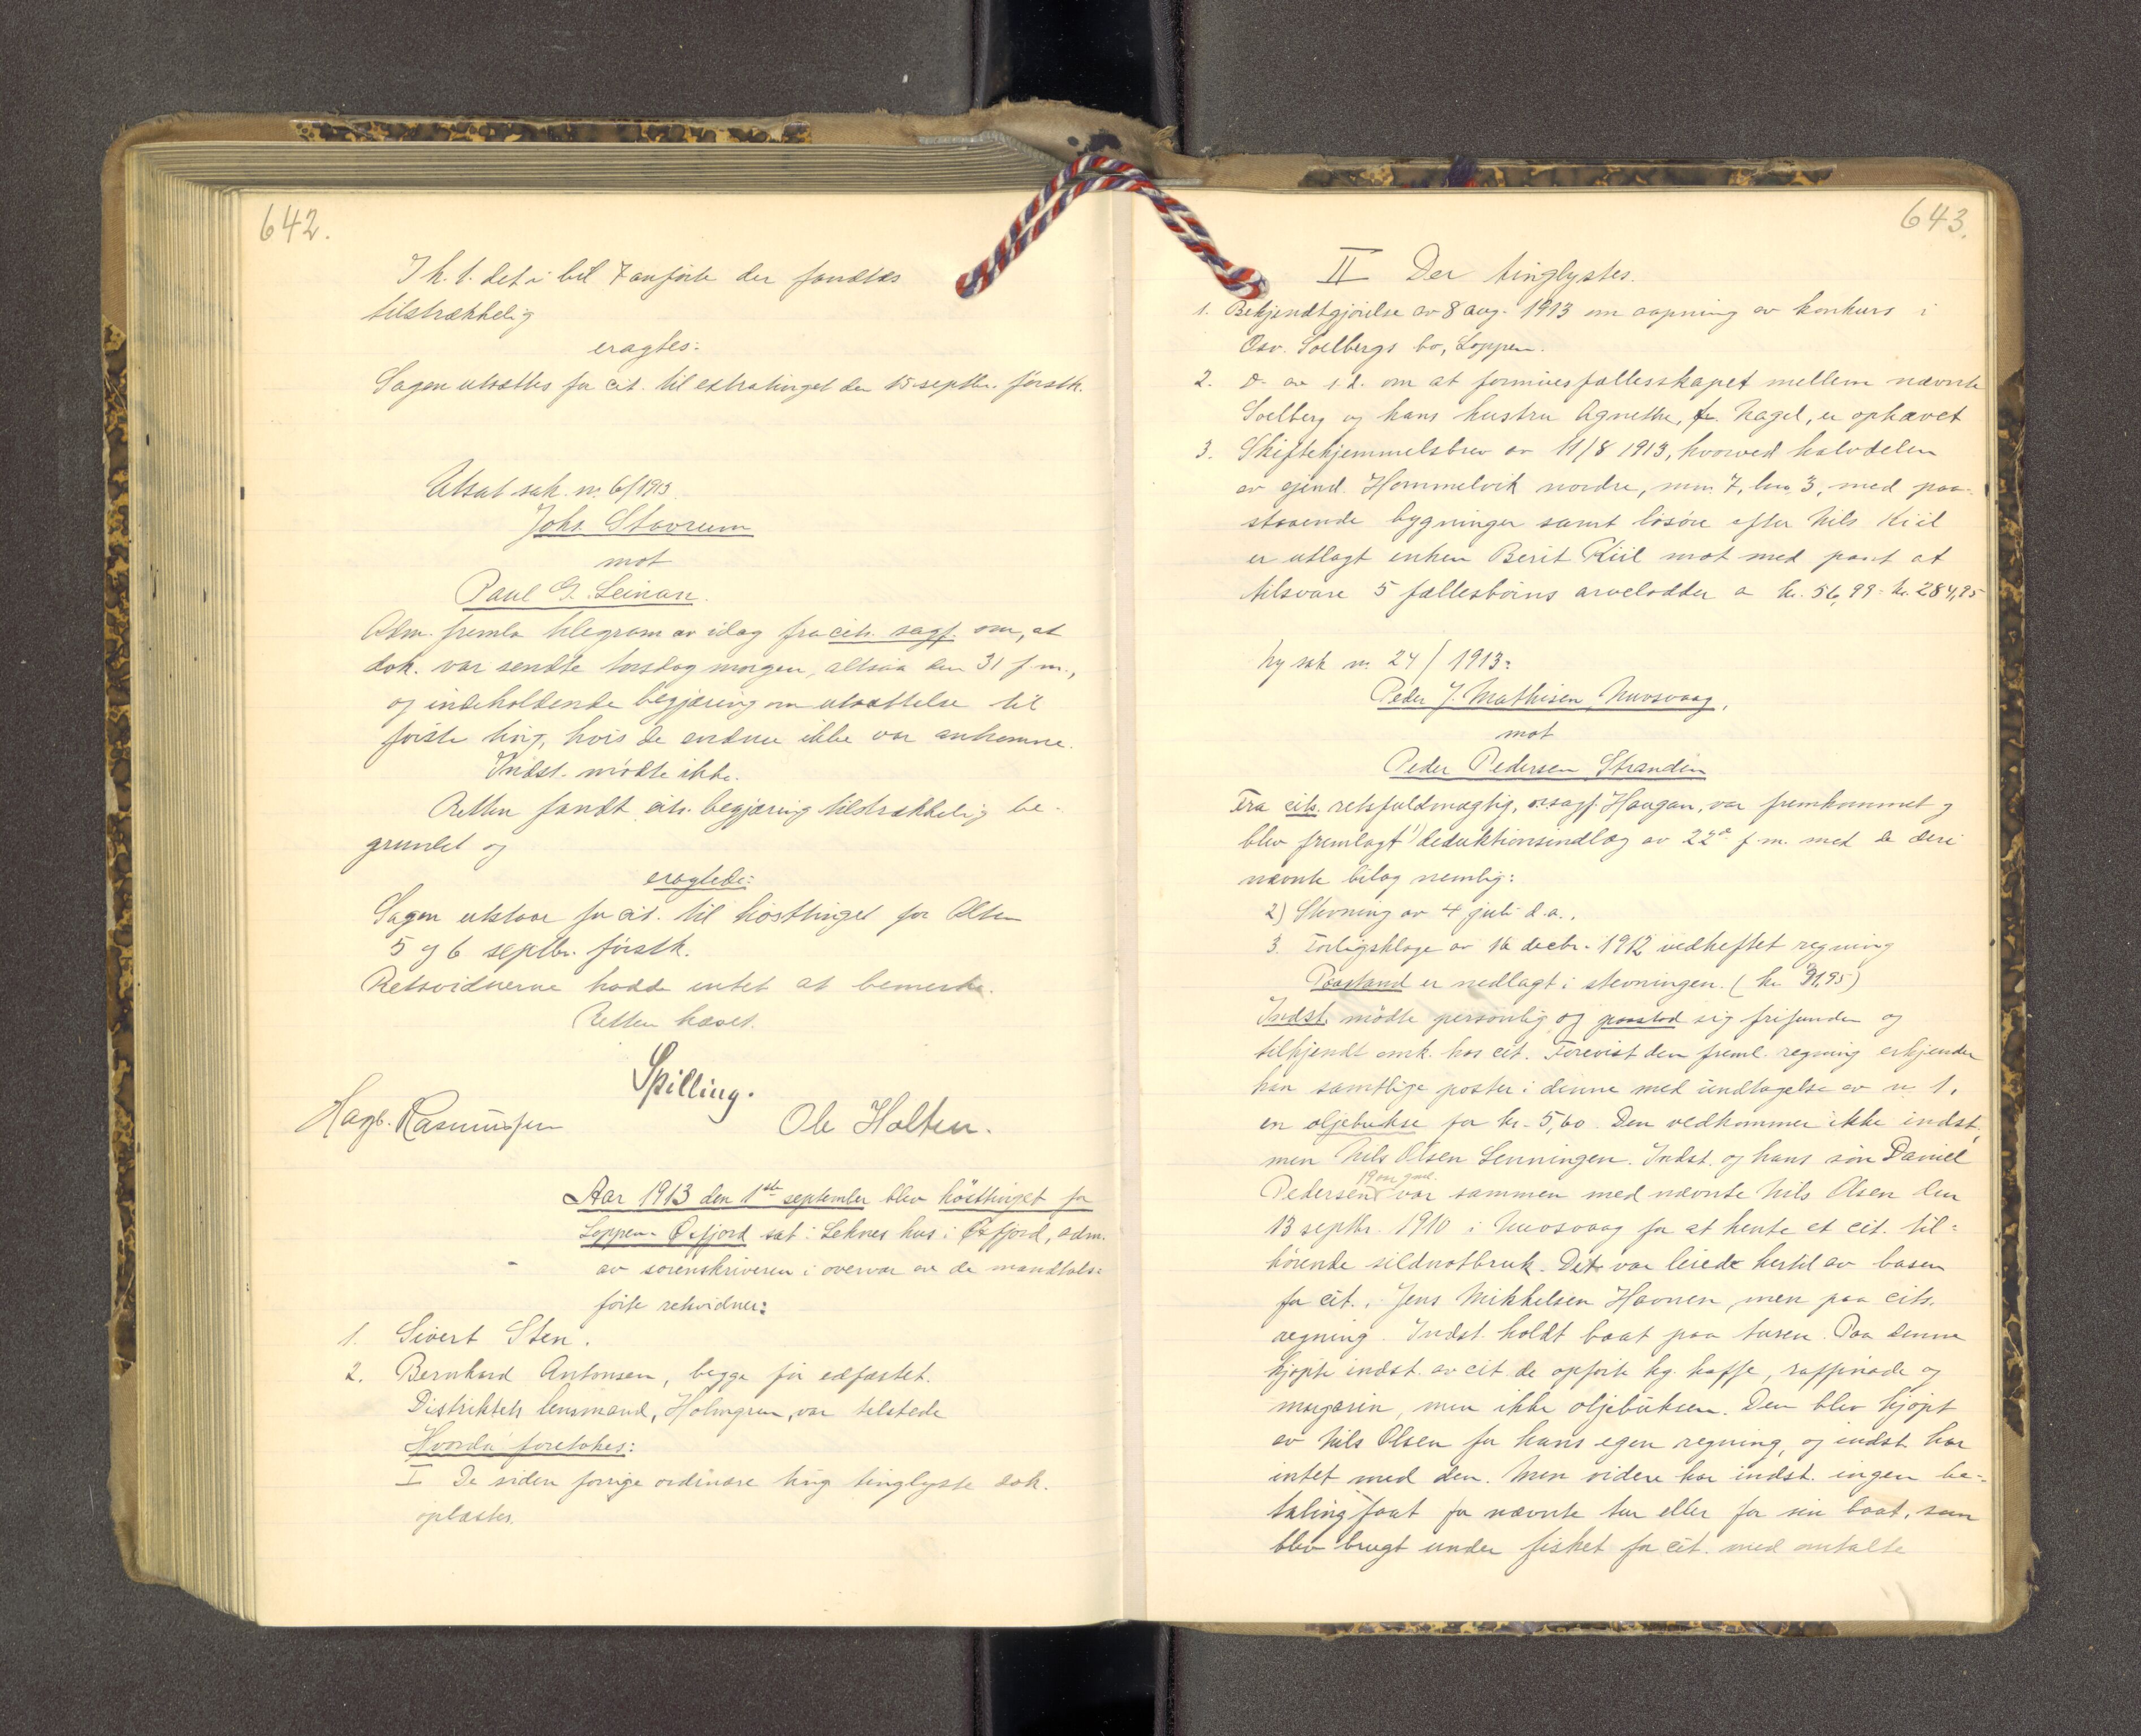 642.
I h. t. det i bil 7 anførte der fandtes
tilstrækkelig
eragtes:
Sagen utsættes for cit. til extratinget den 15 septbr. førstk.
Utsat sak. nr. 6/1913
Johs. Stavrum
mot
Paul G. Leinan.
Adm. fremla telegram av idag fra cits. sagf. om, at
dok. var sendte torsdag morgen, altsaa den 31 f. m.,
og indeholdende begjæring om utsættelse til
første ting, hvis de endnu ikke var ankomne.
Indst. mødte ikke.
Retten fandt cits. begjæring tilstrækkelig be-
grundet og
eragtede:
Sagen utstaar for cit. til høsttinget for Alten
5 og 6 septbr. førstk.
Retsvidnerne hadde intet at bemerke.
Retten hævet.
Spilling.
Hagb. Rasmussen
Ole Holten.
Aar 1913 den 1ste september blev høsttinget for
Loppen-Øxfjord sat i Leknes hus i Øxfjord, adm.
av sorenskriveren i overvær av de mandtals=
førte retsvidner:
1. Sivert Sten.
2. Bernhard Antonsen, begge før edfæstet.
Distriktets lensmand, Holmgren, var tilstede
Hvorda foretokes:
I De siden forrige ordinære ting tinglyste dok.
oplæstes.
643.
II Der tinglystes.
1. Bekjendtgjørelse av 8 aug. 1913 om aapning av konkurs i
Osv. Soelbergs bo, Loppen.
2. D. av s. d. om at formuesfællesskapet mellem nævnte
Soelberg og hans hustru Agnethe, f. Nagel, er ophævet
3. Skiftehjemmelsbrev av 11/8 1913, hvorved halvdelen
av eiend. Hommelvik nordre, mnr. 7, bnr. 3, med paa-
staaende bygninger samt løsøre efter Nils Kiil
er utlagt enken Berit Kiil mot med pant at
tilsvare 5 fællesbørns arvelodder a kr. 56,99 = kr. 284,95
Ny sak nr. 24/1913:
Peder J. Mathisen, Nuvsvaag,
mot
Peder Pedersen Stranden
Fra cits. retsfuldmægtig, o.r.sagf. Haugan, var fremkommet og
blev fremlagt 1) deduktionsindlæg av 22de f. m. med de deri
nævnte bilag nemlig:
2) Stevning av 4 juli d. a.,
3. Forligsklage av 16 decbr. 1912 vedheftet regning
Paastand er nedlagt i stevningen. (kr. 91,95)
Indst. mødte personlig og paastod sig frifunden og
tilkjendt omk. hos cit. Forevist den freml. regning erkjender
han samtlige poster i denne med undtagelse av nr. 1,
en oljebukse for kr. 5,60. Den vedkommer ikke indst.,
men Nils Olsen Lenningen. Indst. og hans søn Daniel
Pedersen 19 aar gml. var sammen med nævnte Nils Olsen den
13 septbr. 1910 i Nuvsvaag for at hente et cit. til=
hørende sildnotbruk. Det var leiede hertil av basen
for cit., Jens Mikkelsen Havnen, men paa cits.
regning. Indst. holdt baat paa turen. Paa denne
kjøpte indst. av cit. de opførte kg. kaffe, raffinade og
margarin, men ikke oljebuksen. Den blev kjøpt
av Nils Olsen for hans egen regning, og indst. har
intet med den. Men videre har indst. ingen be-
taling faat for nævnte tur eller for sin baat, som
blev brugt under fisket for cit. med omtalte